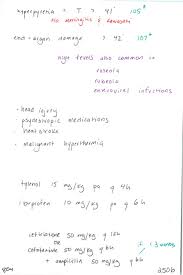 hyperpyrexia = T > 41° 105°
no meningitis & sepsis
end-organ damage > 42 107°
high levels also common in
roseola
rubeola
enteroviral infections
• head injury
psychotropic medications
heatstroke
• malignant hyperthermia
tylenol 15 mg/kg po q 4h
ibuprofen 10 mg/kg po q 6h
ceftriaxone 50 mg/kg q
or
cefotaxime 50 mg/kg q 6h
+ ampicillin 50 mg/kg q 6h